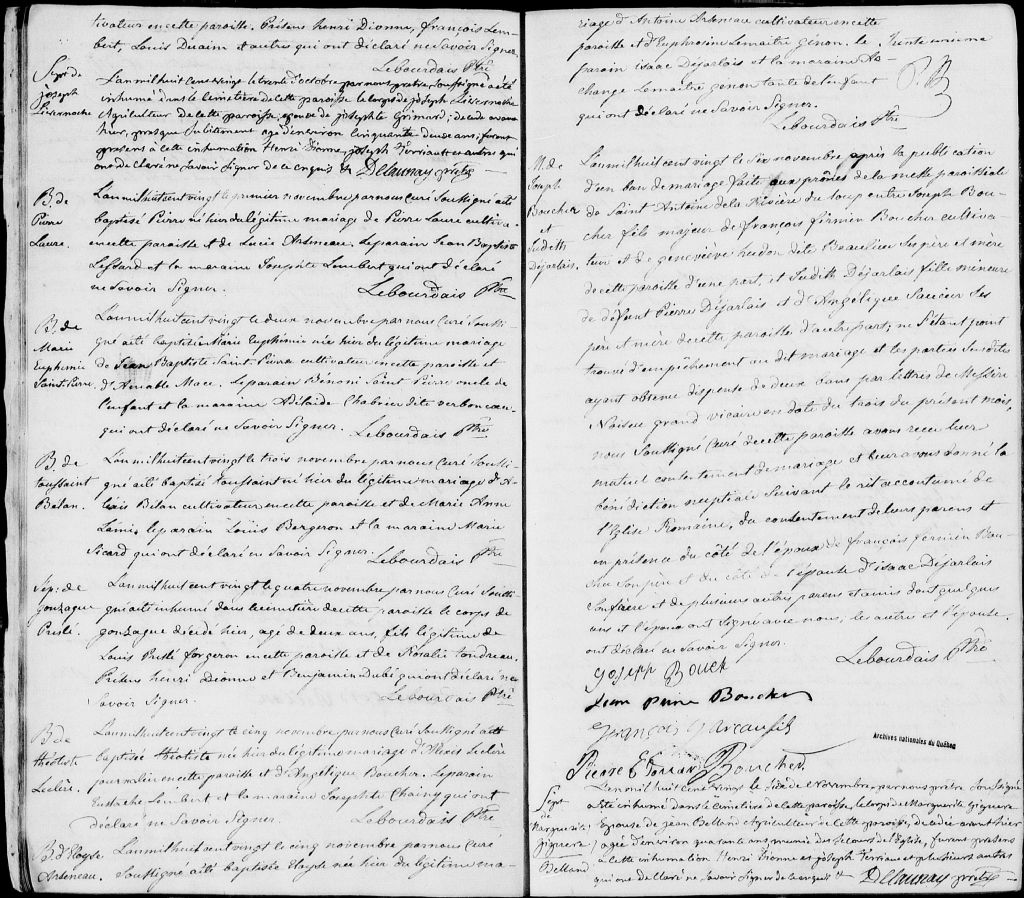 tivateur en cette paroisse. Présens henri Dionne, françois Lem-
bert, Louis Décaim et autres qui ont déclaré ne Savoir Signer
Lebourdais Ptre
Sepr. de
joseph
Livernoche
L'an mil huit cens vingt le trente d'octobre par nous prêtre Soussigné a été
inhumé dans le Cimetière de cette paroisse le corps de joseph Livernoche
Agriculteur de cette paroisse, epoux de josephte Grimard, décédé avant
hier, presque Subitement agé d'environ Cinquante deux ans; furent
presens a cette inhumation Henri Dionne, joseph Ferriau et autres qui
ont declaré ne Savoir Signer de ce enquis
Delaunay prêtre
B. de
Pierre
Laure.
L'an mil huit cent vingt le premier novembre par nous Curé Soussigné a été
baptisé Pierre né hier du légitime mariage de Pierre Laure cultiva-
en cette paroisse et de Lucie Arseneau. Le parain Jean Baptiste
Lessard et la maraine Josephte Lembert qui ont déclaré
ne Savoir Signer.
Lebourdais Ptre
B. de
Marie
Euphemie
Saint-Pierre
L'an mil huit cent vingt le deux novembre par nous Curé Soussi-
gné a été baptisée Marie Euphemie née hier du légitime mariage
de Jean Baptiste Saint-Pierre cultivateur en cette paroisse et
d'Amable Mace. Le parain Bénoni Saint Pierre oncle de
l'enfant et la maraine Adélaide Chabrier dite verboncœur
qui ont déclaré ne Savoir Signer.
Lebourdais Ptre
B. de
toussaint
Belan.
L'an mil huit cent vingt le trois novembre par nous Curé Soussi-
gné a été baptisé toussaint né hier du légitime mariage d'A-
Belan cultivateur en cette paroisse et de Marie Anne
Lami. Le parain Louis Bergeron et la maraine Marie
Sicard qui ont déclaré ne Savoir Signer.
Lebourdais Ptre
Sép: de
Gonzague
Preslé.
L'an mil huit cent vingt le quatre novembre par nous Curé Soussi-
gné a été inhumé dans le cimetière de cette paroisse le corps de
gonzague décédé hier, agé de deux ans, fils légitime de
Louis Preslé forgeron en cette paroisse et de Rosalie Landreau.
Présens henri Dionne et Benjamin Dubé qui ont déclaré ne
Savoir Signer.
Lebourdais Ptre
B. de
Héotiste
Leclère.
L'an mil huit cent vingt le cinq novembre par nous Curé Soussigné a été
baptisée Héotiste née hier du légitime mariage d'Alexis Leclère
journalier en cette paroisse et d'Angélique Boucher. Le parain
Eustache Lembert et la maraine Josephte Chainy qui ont
déclaré ne Savoir Signer.
Lebourdais Ptre
B. d'Eloyse
Arseneau.
L'an mil huit cent vingt le cinq novembre par nous Curé
Soussigné a été baptisée Eloyse née hier du légitime ma-
riage d'Antoine Arseneau cultivateur en cette
paroisse et d'Euphrosine Lemaitre génon. le
parain isaac Déjarlais et la maraine Ar-
change Lemaitre genon tante de l'enfant
qui ont déclaré ne Savoir Signer.
Lebourdais Ptre
M. de
Joseph
Boucher
et
Judeth
Déjarlais.
L'an mil huit cent vingt le Six novembre après la publication
d'un ban de mariage faite aux prônes de la messe paroissiale
de Saint Antoine de la Rivière du loup entre Joseph Bou-
cher fils majeur de françois firmien Boucher cultiva-
teur et de geneviève hudon dite Beaulieu Ses père et mère
de cette paroisse d'une part, et Judith Déjarlais fille mineure
de défunt Pierre Déjarlais et d'Angelique Saucier Ses
père et mère de cette paroisse d'autre part; ne S'étant point
trouvé d'empêchement au dit mariage et les parties Susdites
ayant obtenu dispense de deux bans par lettres de Messire
Noiseu grand vicaire en date du trois du présent mois,
nous Soussigné Curé de cette paroisse avons recu leur
mutuel consentement de mariage et leur avons donné la
bénédiction nuptiale Suivant le rit accoutumé de
l'Eglise Romaine, du consentement de leurs parens et
en présence du côté de l'époux de françois firmien Bou-
cher Son père et du côté de l'épouse d'isaac Déjarlais
Son frère et de plusieurs autres parens et amis dont quelques
uns et l'époux ont Signé avec nous, les autres et l'épouse
ont déclaré ne Savoir Signer.
Lebourdais Ptre
Joseph Bouch
Jean Pierre Boucher
François Gareau fils
Archives nationales du Québec
Pierre Boucher
Sept
de
Marguerite
Giguere
Belland
L'en mil huit Cens vingt le Six de Novembre par nous prêtre Soussigné
a été inhumé dans le Cimetière de cette paroisse, le corps de Marguerite Giguere
Epouse de jean Belland Agriculteur de Cette paroisse, décédée avant hier
agée d'environ quarante ans munie des Secours de l'Eglise, furent presens
a cette inhumation Henri Dionne et joseph Ferriau et plusieurs autres
qui ont declaré ne Savoir Signer de ce enquis
Delaunay prêtre